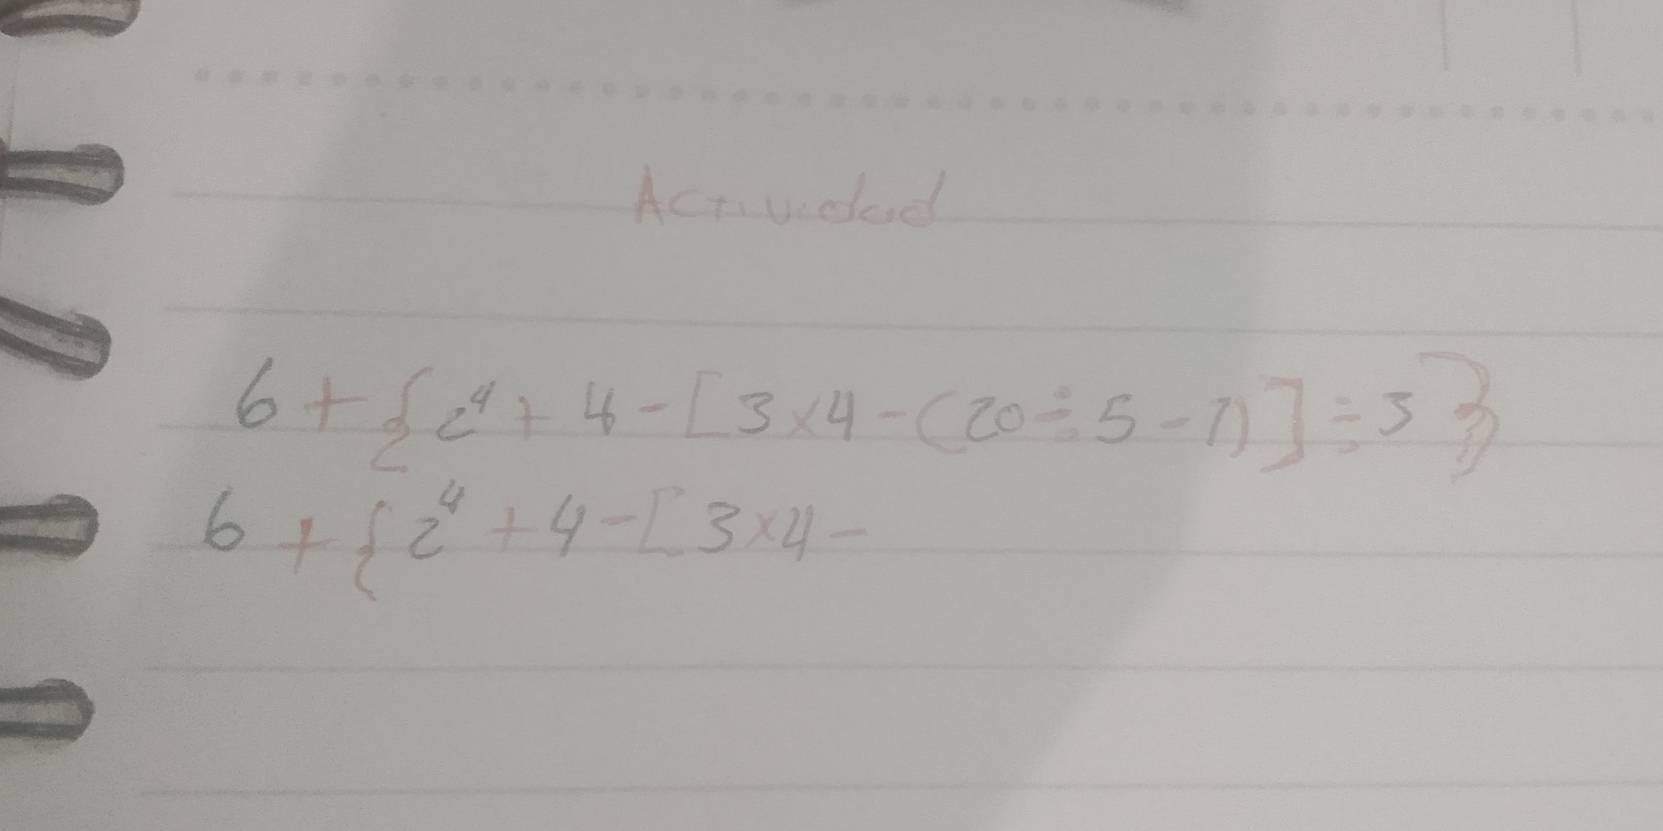 Actividad
6 + { 2⁴ + 4 - [ 3 × 4 - ( 20 ÷ 5 - 1 ) ] ÷ 3 }
6 + { 2⁴ + 4 - [ 3 × 4 -